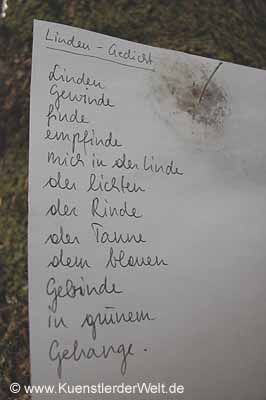 Linden - Gedicht
Linden
Gewinde
finde
empfinde
mich in der Linde
der lichten
der Rinde
der Tanne
dem blauen
Gebinde
in grünem
Gehänge.
© www.KuenstlerderWelt.de